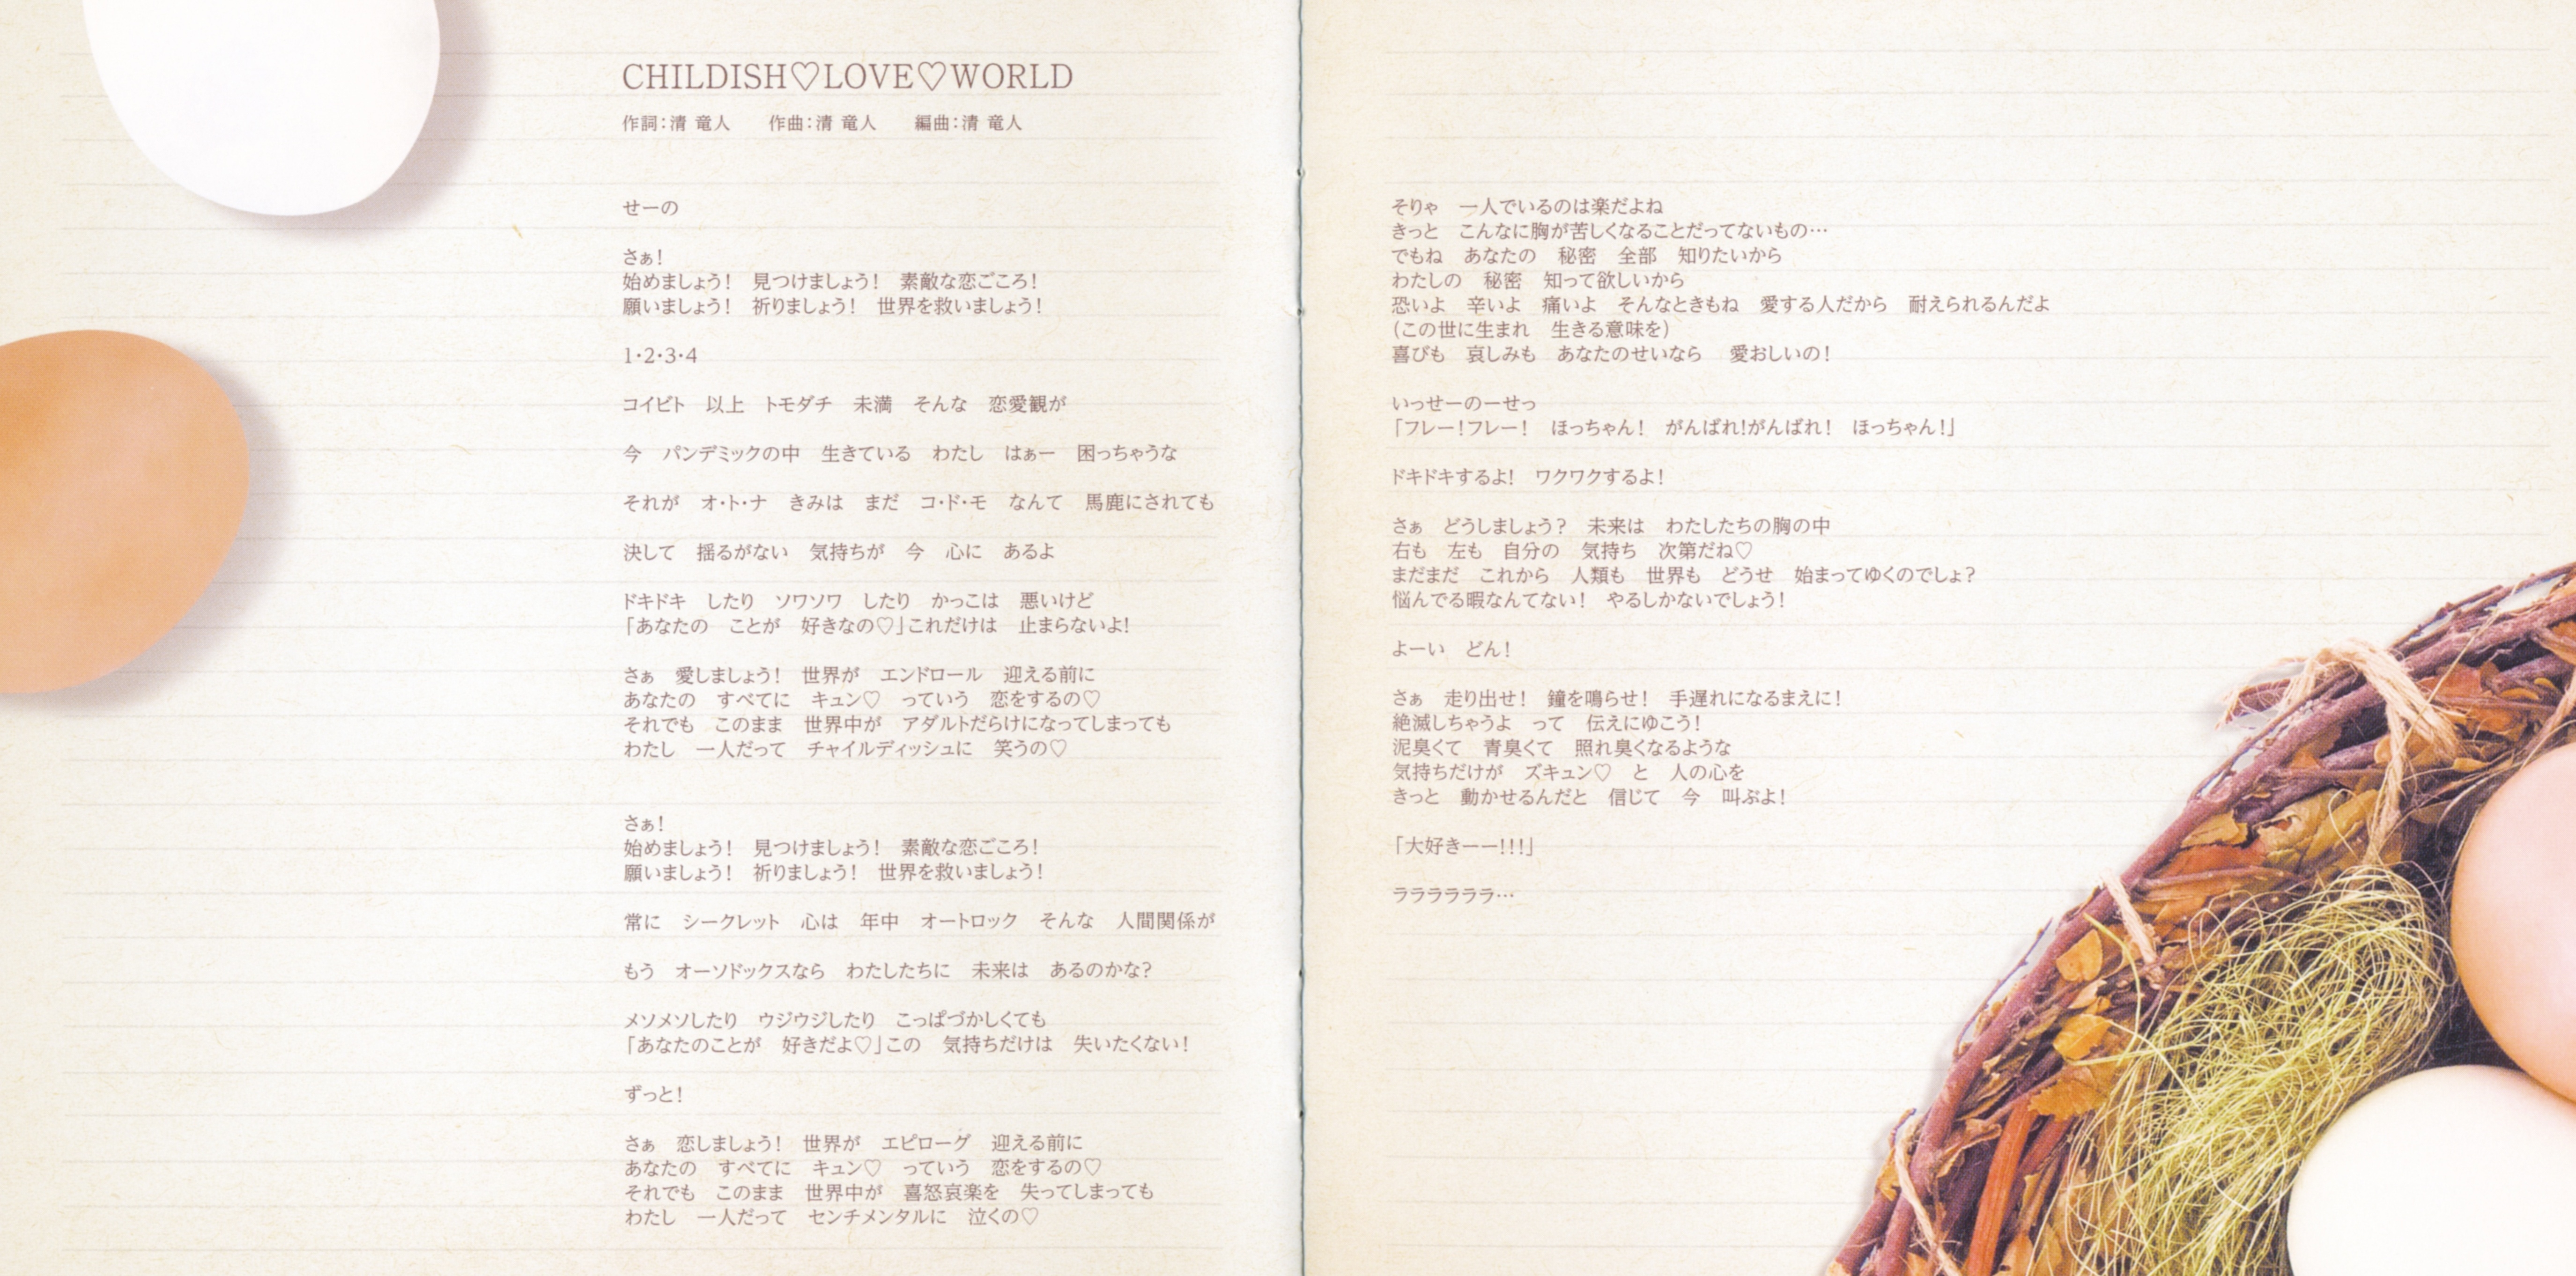 CHILDISH♡LOVE♡WORLD
作詞：清 竜人　作曲：清 竜人　編曲：清 竜人
せーの
さぁ！
始めましょう！　見つけましょう！　素敵な恋ごころ！
願いましょう！　祈りましょう！　世界を救いましょう！
1・2・3・4
コイビト　以上　トモダチ　未満　そんな　恋愛観が
今　パンデミックの中　生きている　わたし　はぁー　困っちゃうな
それが　オ・ト・ナ　きみは　まだ　コ・ド・モ　なんて　馬鹿にされても
決して　揺るがない　気持ちが　今　心に　あるよ
ドキドキ　したり　ソワソワ　したり　かっこは　悪いけど
「あなたの　ことが　好きなの♡」これだけは　止まらないよ！
さぁ　愛しましょう！　世界が　エンドロール　迎える前に
あなたの　すべてに　キュン♡　っていう　恋をするの♡
それでも　このまま　世界中が　アダルトだらけになってしまっても
わたし　一人だって　チャイルディッシュに　笑うの♡
さぁ！
始めましょう！　見つけましょう！　素敵な恋ごころ！
願いましょう！　祈りましょう！　世界を救いましょう！
常に　シークレット　心は　年中　オートロック　そんな　人間関係が
もう　オーソドックスなら　わたしたちに　未来は　あるのかな？
メソメソしたり　ウジウジしたり　こっぱづかしくても
「あなたのことが　好きだよ♡」この　気持ちだけは　失いたくない！
ずっと！
さぁ　恋しましょう！　世界が　エピローグ　迎える前に
あなたの　すべてに　キュン♡　っていう　恋をするの♡
それでも　このまま　世界中が　喜怒哀楽を　失ってしまっても
わたし　一人だって　センチメンタルに　泣くの♡
そりゃ　一人でいるのは楽だよね
きっと　こんなに胸が苦しくなることだってないもの…
でもね　あなたの　秘密　全部　知りたいから
わたしの　秘密　知って欲しいから
恐いよ　辛いよ　痛いよ　そんなときもね　愛する人だから　耐えられるんだよ
（この世に生まれ　生きる意味を）
喜びも　哀しみも　あなたのせいなら　愛おしいの！
いっせーのーせっ
「フレー！フレー！　ほっちゃん！　がんばれ！がんばれ！　ほっちゃん！」
ドキドキするよ！　ワクワクするよ！
さぁ　どうしましょう？　未来は　わたしたちの胸の中
右も　左も　自分の　気持ち　次第だね♡
まだまだ　これから　人類も　世界も　どうせ　始まってゆくのでしょ？
悩んでる暇なんてない！　やるしかないでしょう！
よーい　どん！
さぁ　走り出せ！　鐘を鳴らせ！　手遅れになるまえに！
絶滅しちゃうよ　って　伝えにゆこう！
泥臭くて　青臭くて　照れ臭くなるような
気持ちだけが　ズキュン♡　と　人の心を
きっと　動かせるんだと　信じて　今　叫ぶよ！
「大好きーー！！！」
ララララララ…